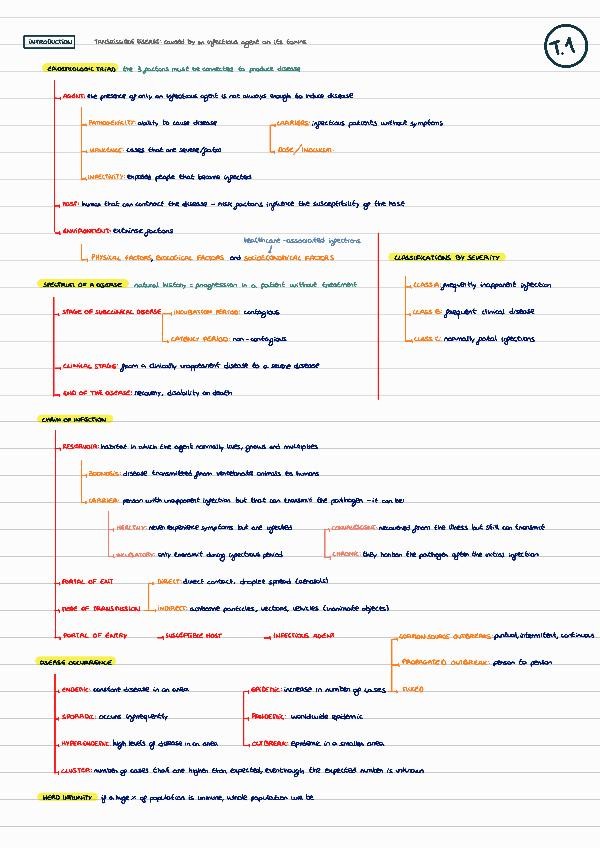 INTRODUCTION TRANSMISSIBLE DISEASE: caused by an infectious agent on its toxins
T.1
EPIDEMIOLOGIC TRIAD the 3 factors must be connected to produce disease
AGENT: the presence of only an infectious agent is not always enough to induce disease
PATHOGENICITY: ability to cause disease
CARRIERS: infectious patients without symptoms
VIRULENCE: cases that are severe/fatal
DOSE/INOCULUM
INFECTIVITY: exposed people that become infected
HOST: human that can contract the disease - risk factors influence the susceptibility of the host
ENVIRONMENT: extrinsic factors
healthcare-associated infections
PHYSICAL FACTORS, BIOLOGICAL FACTORS and SOCIOECONOMICAL FACTORS
CLASSIFICATIONS BY SEVERITY
CLASS A: frequently inapparent infection
CLASS B: frequent clinical disease
CLASS C: normally fatal infections
SPECTRUM OF A DISEASE natural history = progression in a patient without treatment
STAGE OF SUBCLINICAL DISEASE INCUBATION PERIOD: contagious
LATENCY PERIOD: non-contagious
CLINICAL STAGE: from a clinically unapparent disease to a severe disease
END OF THE DISEASE: recovery, disability on death
CHAIN OF INFECTION
RESERVOIR: habitat in which the agent normally lives, grows and multiplies
ZOONOSIS: disease transmitted from vertebrate animals to humans
CARRIER: person with unapparent infection but that can transmit the pathogen - it can be:
HEALTHY: never experience symptoms but are infected
CONVALESCENT: recovered from the illness but still can transmit
INCUBATORY: only transmit during infectious period
CHRONIC: they harbor the pathogen after the initial infection
PORTAL OF EXIT
DIRECT: direct contact, droplet spread (aerosols)
MODE OF TRANSMISSION
INDIRECT: airborne particles, vectors, vehicles (inanimate objects)
PORTAL OF ENTRY SUSCEPTIBLE HOST INFECTIOUS AGENT
DISEASE OCCURRENCE
ENDEMIC: constant disease in an area
EPIDEMIC: increase in number of cases
COMMON SOURCE OUTBREAKS: puntual, intermitent, continuous
PROPAGATED OUTBREAK: person to person
MIXED
SPORADIC: occurs infrequently
PANDEMIC: worldwide epidemic
HYPERENDEMIC: high levels of disease in an area
OUTBREAK: Epidemic in a smaller area
CLUSTER: number of cases that are higher than expected, eventhough the expected number is unknown
HERD IMMUNITY if a huge % of population is immune, whole population will be